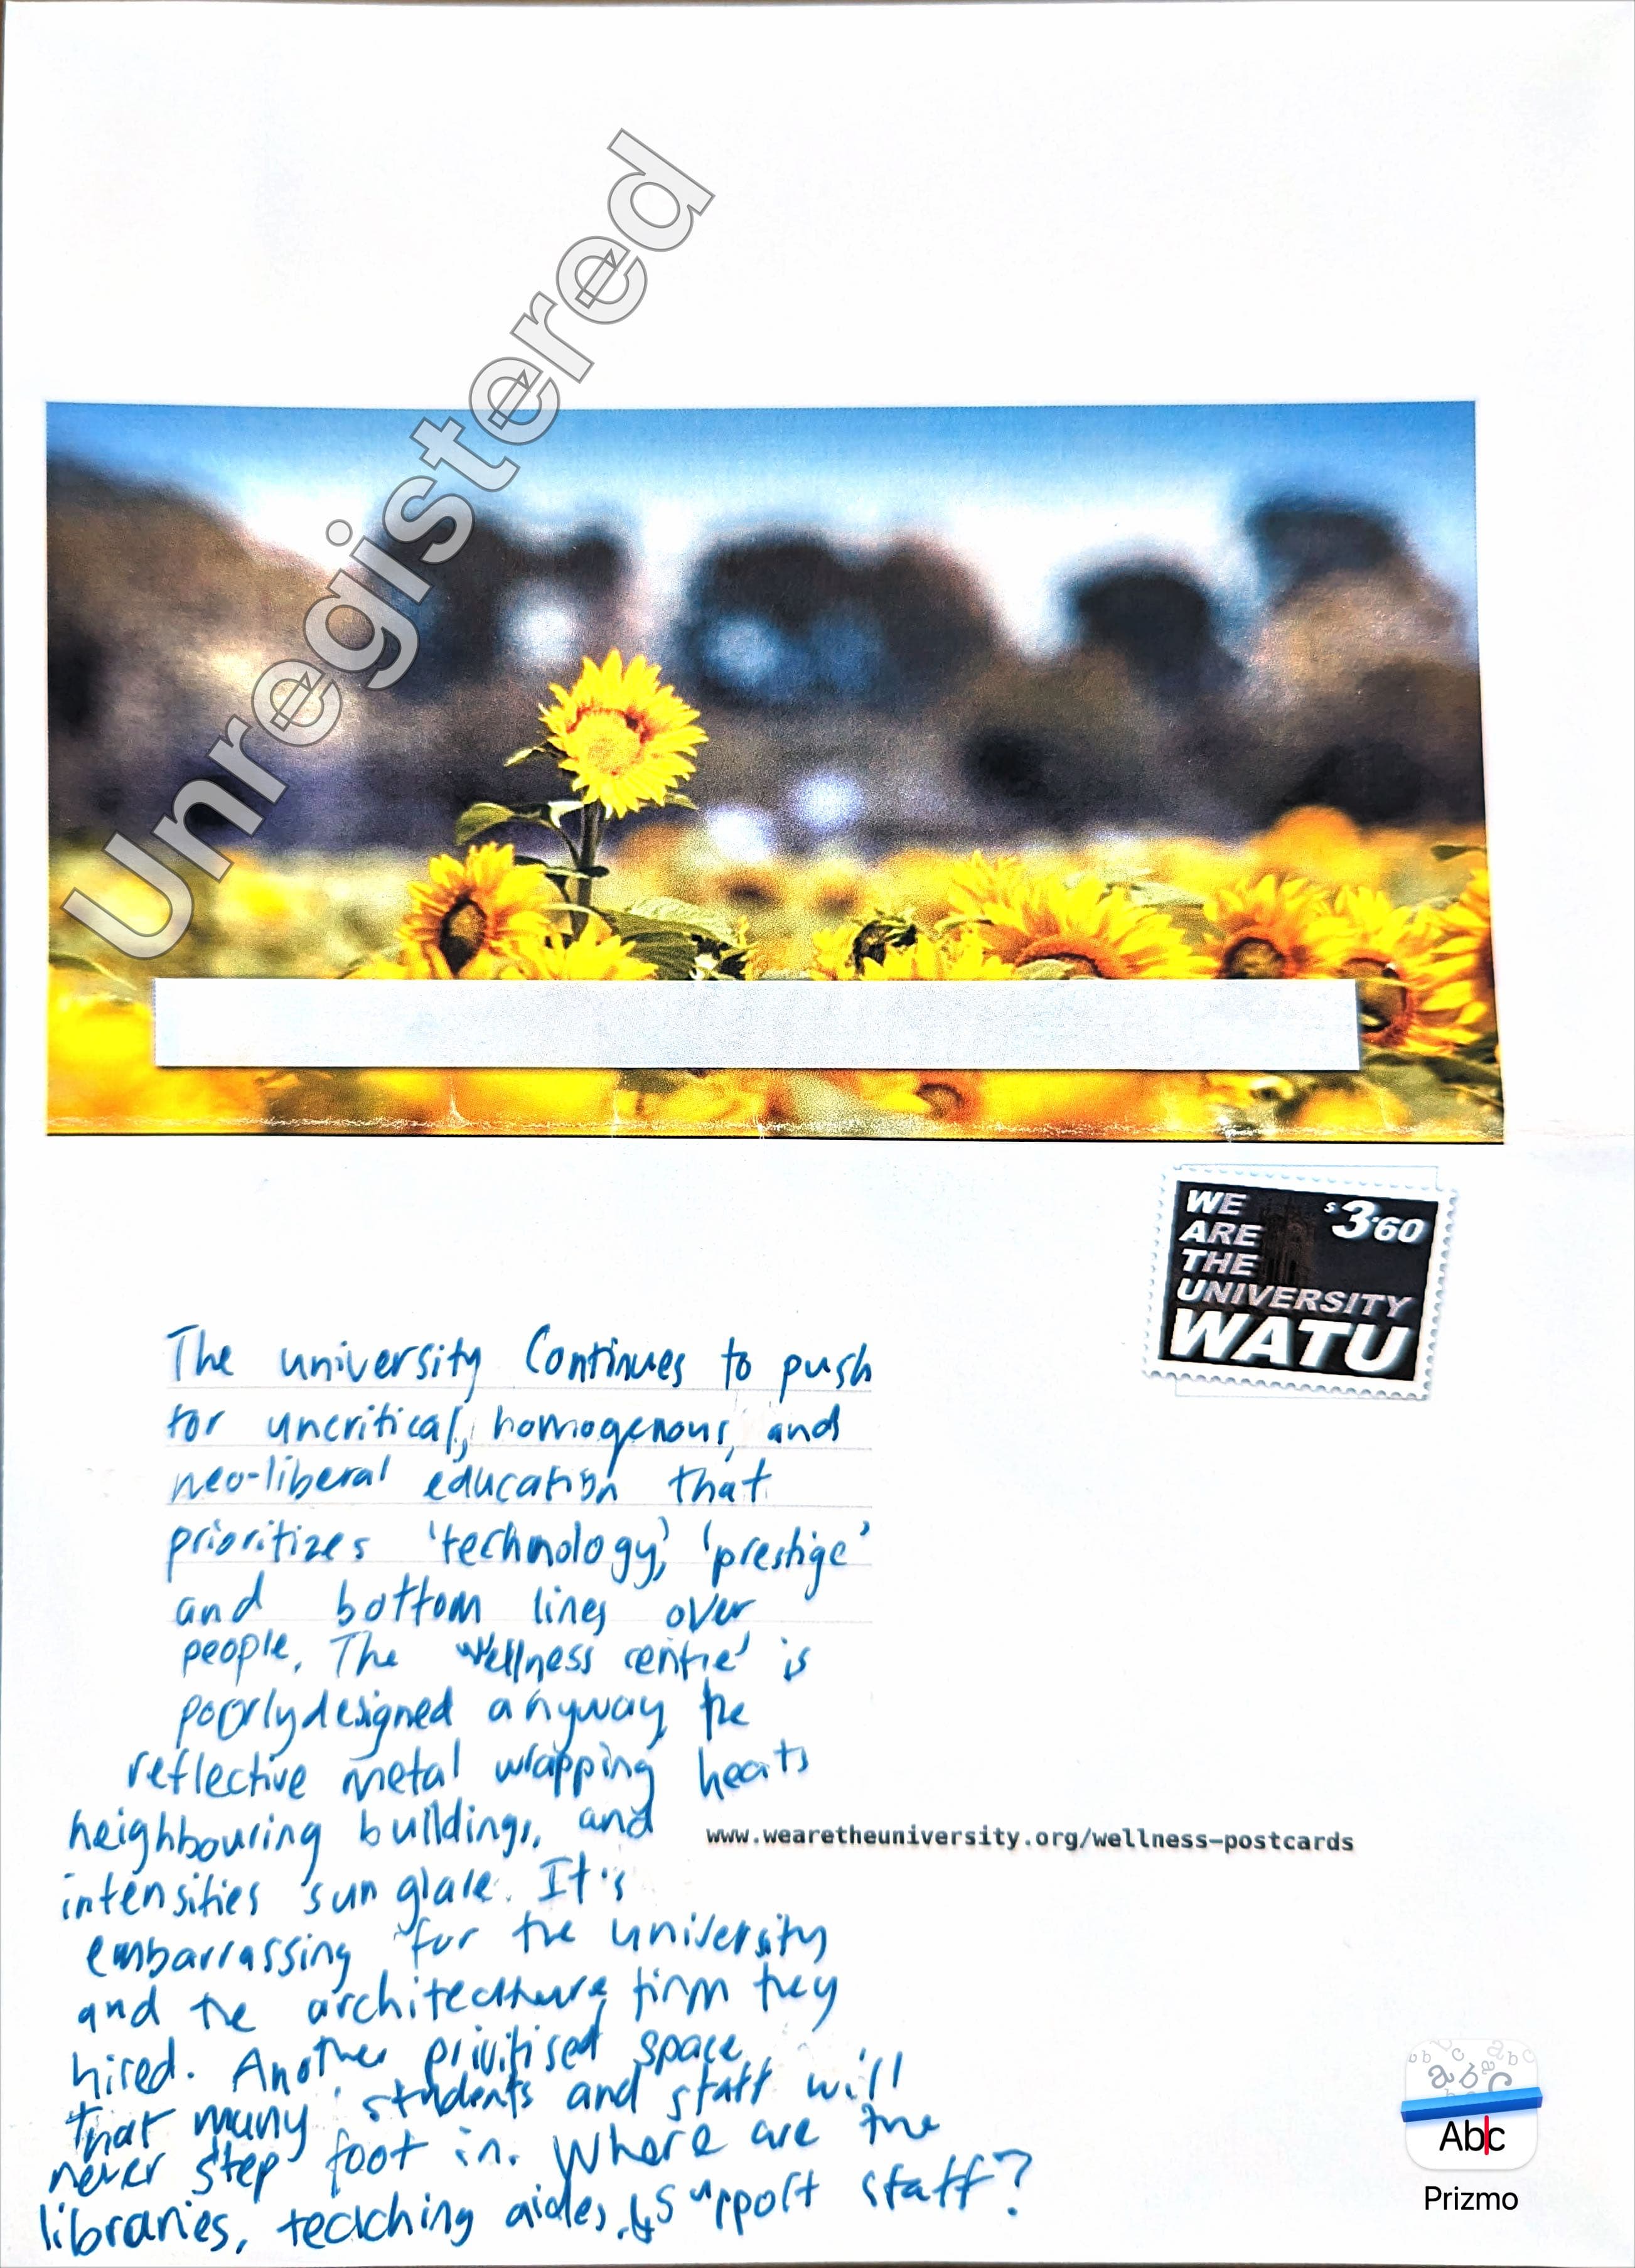 Unregistered
WE
ARE
THE
UNIVERSITY
WATU
$3.60
The university Continues to push
for uncritical, homogenous, and
neo-liberal education that
prioritizes 'technology', 'prestige'
and bottom lines over
people. The 'wellness centre' is
poorly designed anyway, the
reflective metal wrapping heats
neighbouring buildings, and
www.wearetheuniversity.org/wellness-postcards
intensities sun glare. It's
embarrassing for the university
and the architecture firm they
hired. Another privitised space
that many students and staff will
never step foot in. Where are the
libraries, teaching aides, & support staff?
Abc
Prizmo